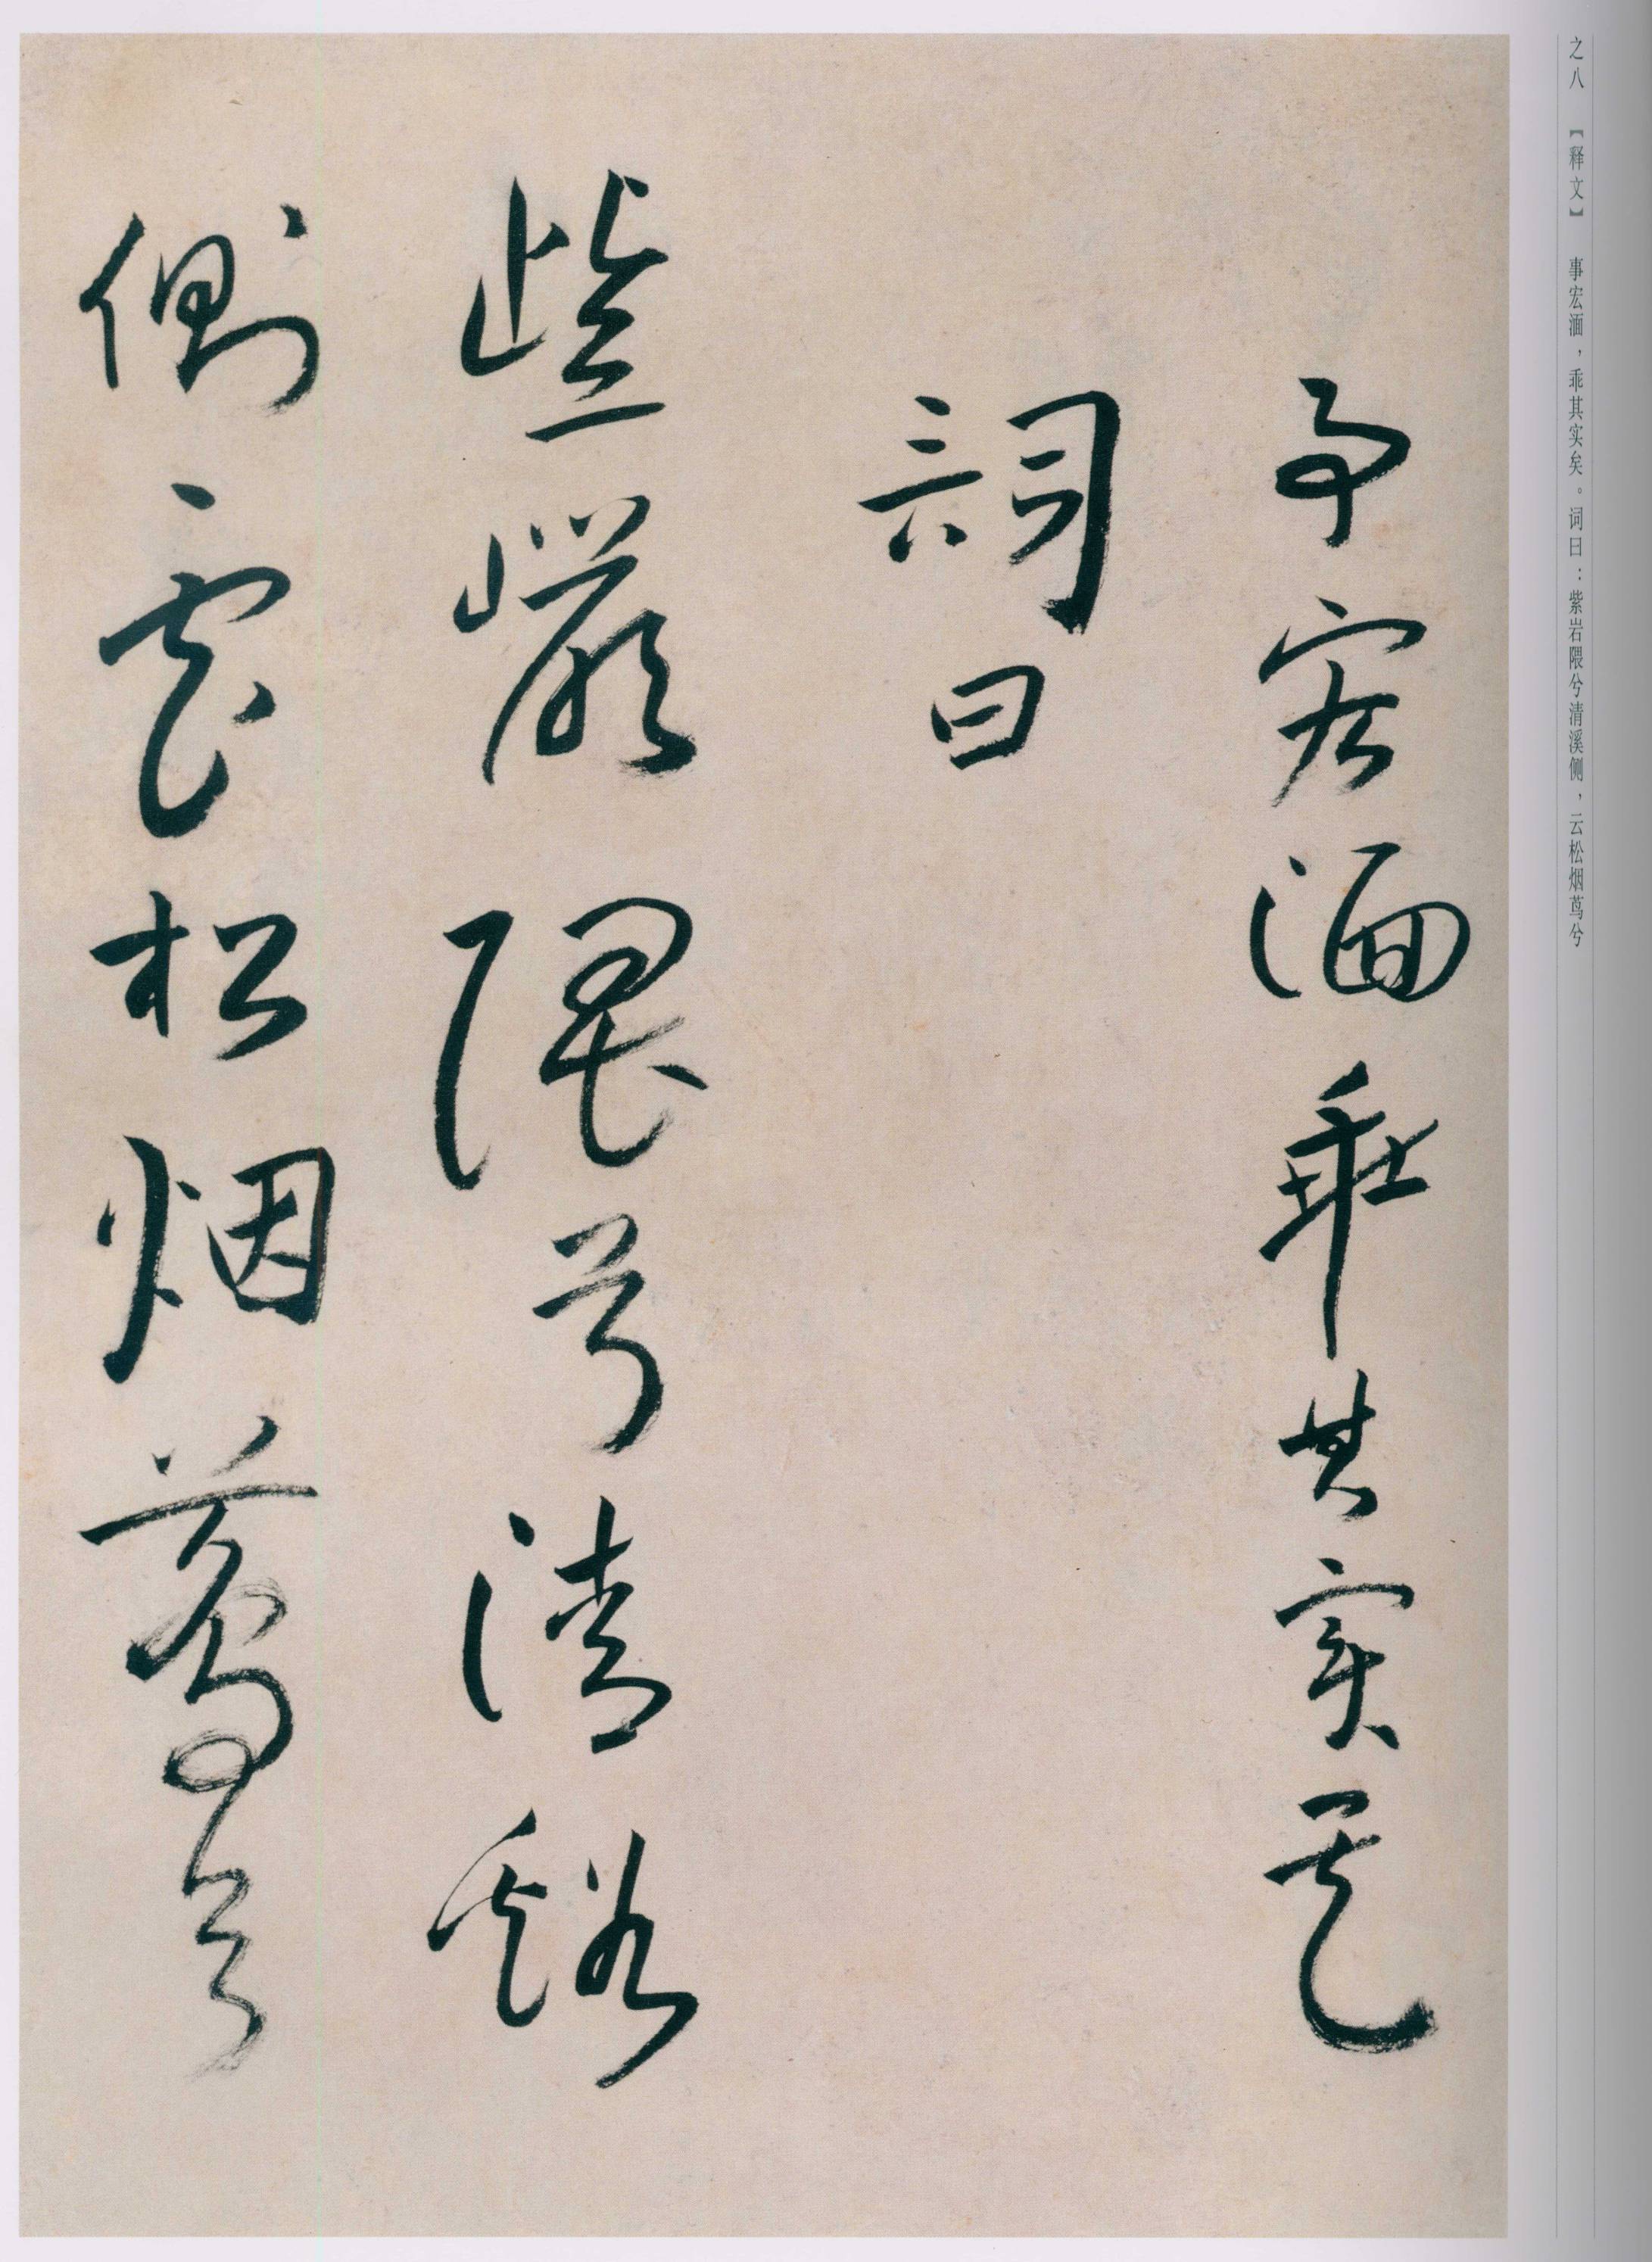 之八 【释文】 事宏湎，乖其实矣。词曰：紫岩隈兮清溪侧，云松烟茑兮
事宏湎乖其实矣
詞曰
紫巖隈兮清谿
側雲松烟蔦兮